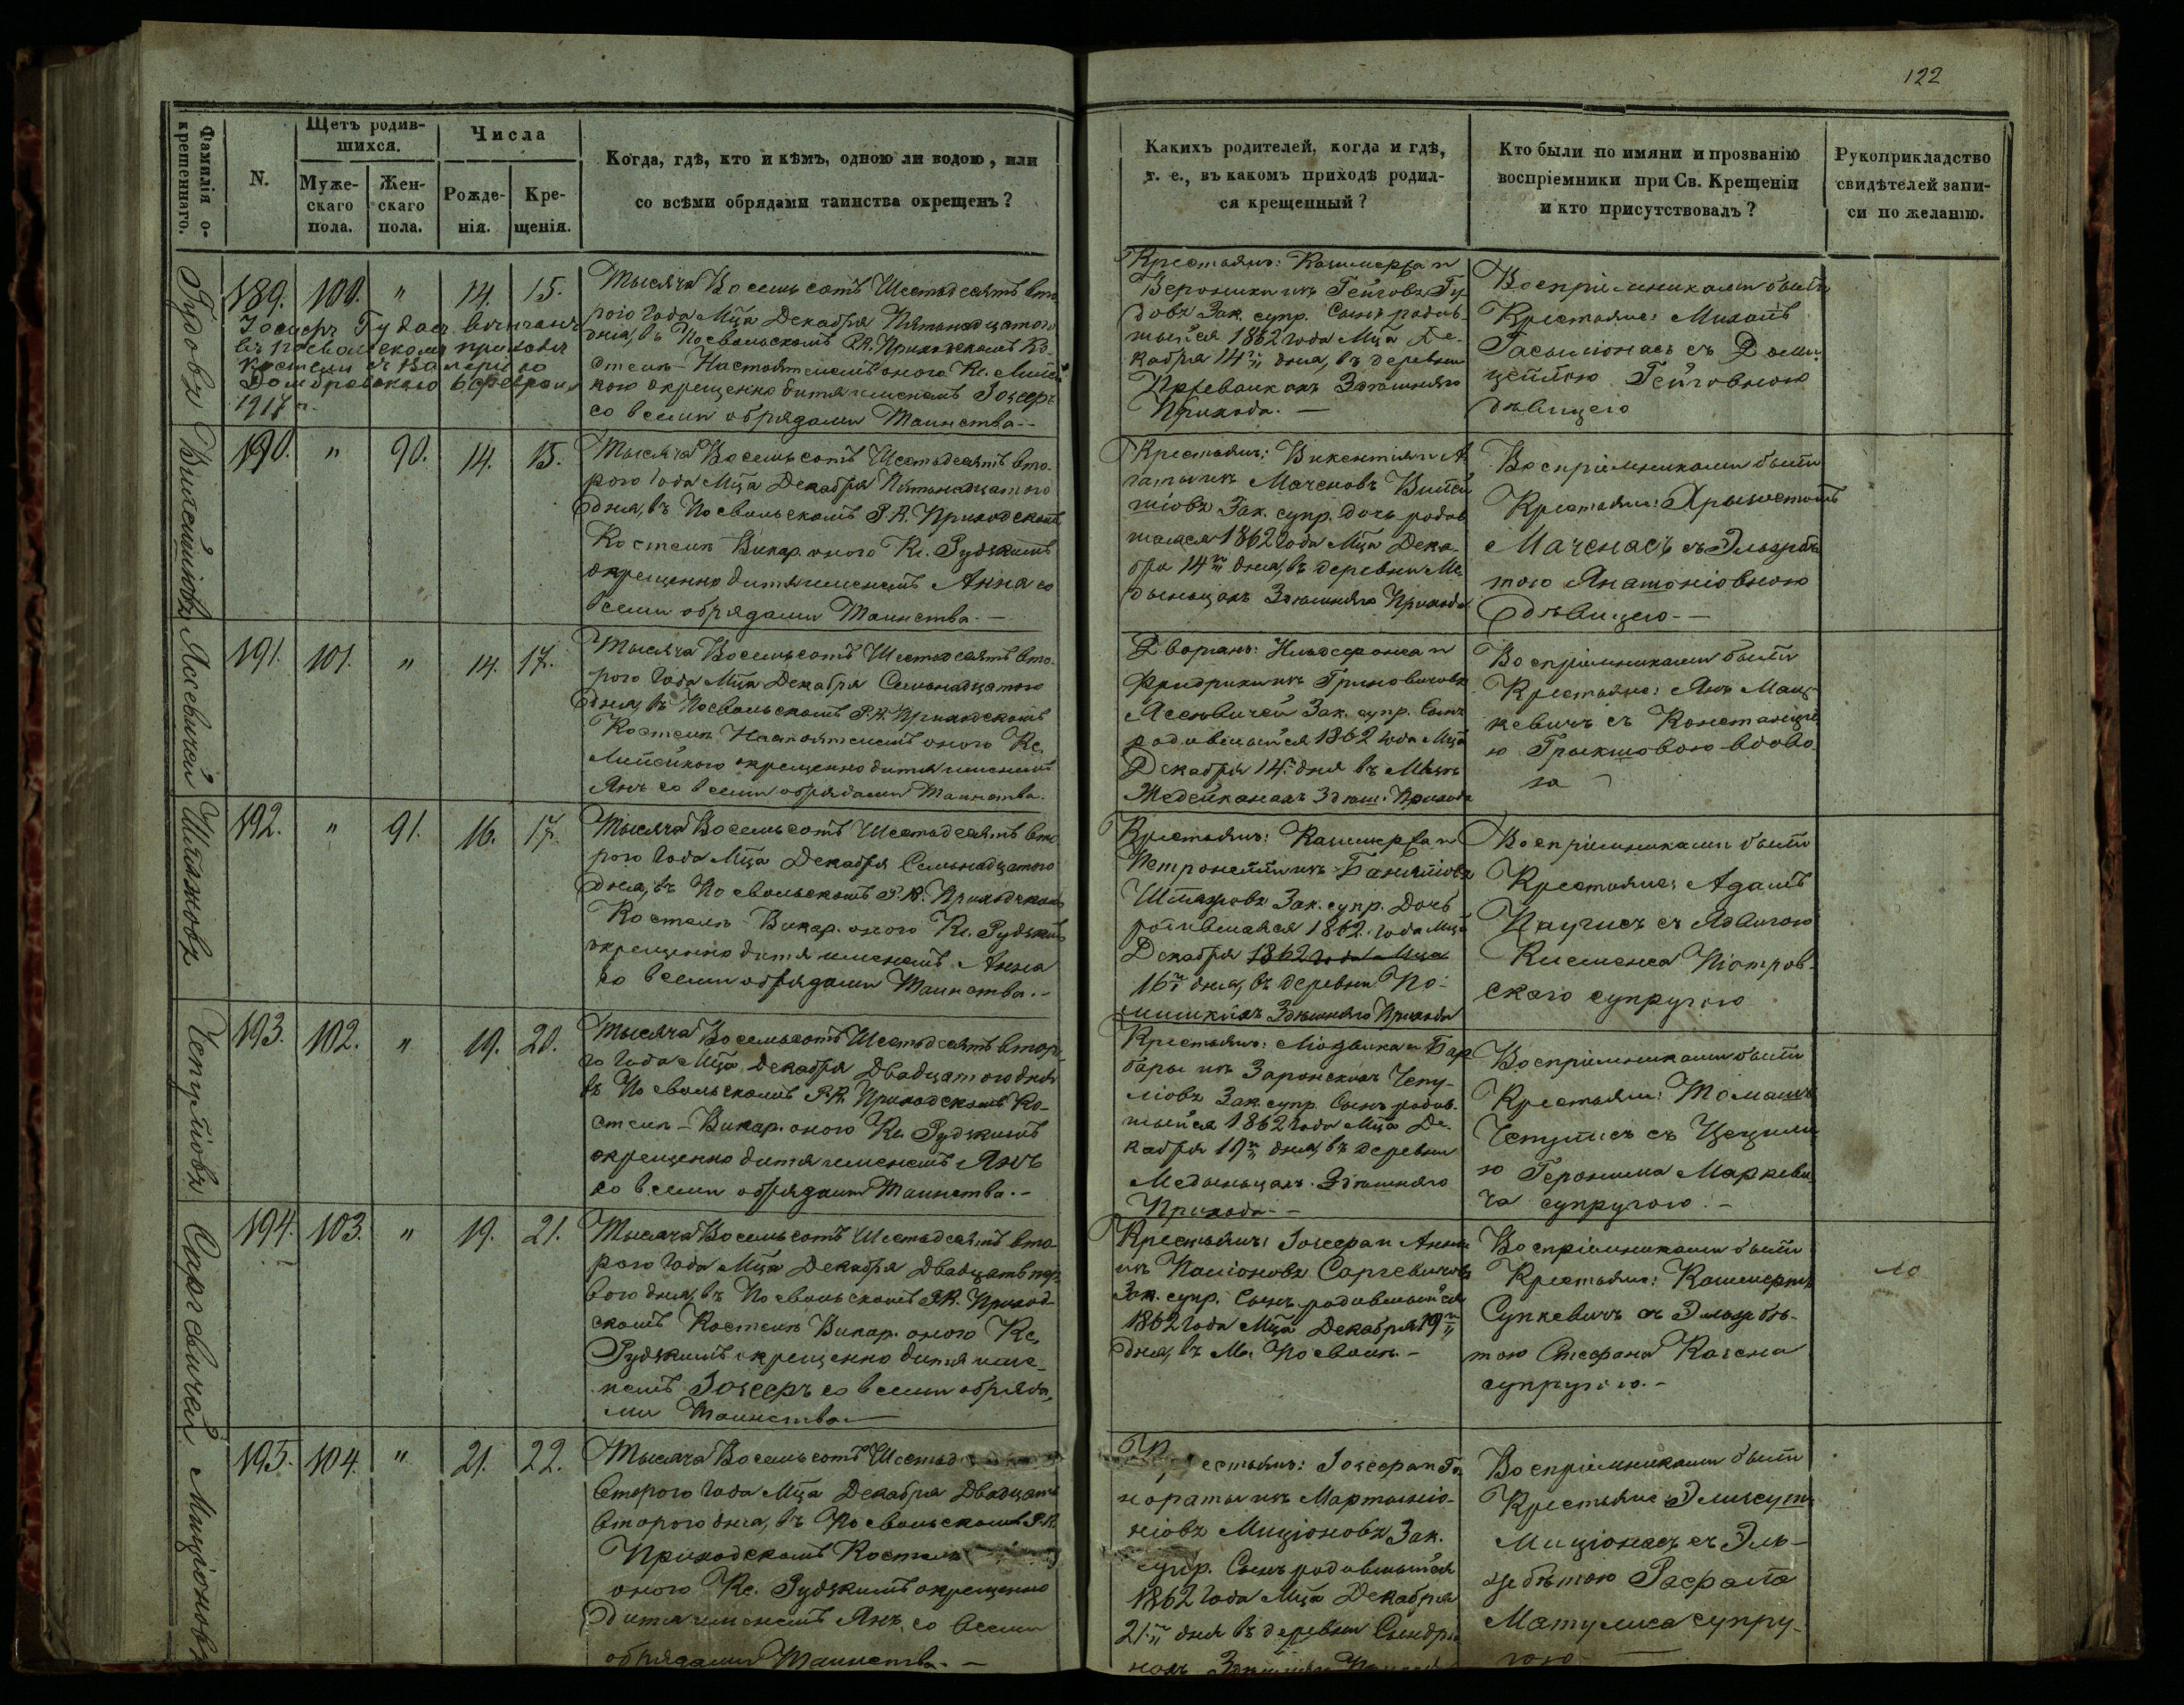 122
Фамилія о-
крещеннаго.
N.
Щетъ родив-
шихся.
Муже-
скаго
пола.
Жен-
скаго
пола.
Числа
Рожде-
нія.
Кре-
щенія.
Когда, гдѣ, кто и кѣмъ, одною ли водою, или
со всѣми обрядами таинства окрещенъ?
Какихъ родителей, когда и гдѣ,
т. е., въ какомъ приходѣ родил-
ся крещенный?
Кто были по имяни и прозванію
воспріемники при Св. Крещеніи
и кто присутствовалъ?
Рукоприкладство
свидѣтелей запи-
си по желанію.
189. 100. " 14. 15.
Іосифъ Гудасъ вѣнчанъ
въ Посвольскомъ приходѣ
костели съ Валеріею
Домбровскаго 6 февраля
1917 г.
Тысяча Восемьсотъ Шестьдесятъ вто-
рого Года Мца Декабря Пятьнадцатого
дня, въ Посвольскомъ Р.К. Приходскомъ Ко-
стелѣ Настоятелемъ оного Кс.
окрещенно дитя именемъ Іосифъ
со всеми обрядами Таинства. -
Крестьянъ: Казимержа и
Вероники изъ Гу-
довъ Зак. супр. Сынъ родив-
шыйся 1862 года Мца Де-
кабря 14 дня, въ деревни
Здѣшняго
Прихода. -
Воспріемниками были
Крестьяне: Михалъ
съ Доми-
целлею
дѣвицею
190. " 90. 14. 15.
Тысяча Восемьсотъ Шестьдесятъ вто-
рого Года Мца Декабря Пятьнадцатого
дня, въ Посвольскомъ Р.К. Приходскомъ
Костелѣ Викар. оного Кс. Рудзкимъ
окрещенно дитя именемъ Анна со
всеми обрядами Таинства. -
Крестьянъ: Викентія и А-
гаты изъ Маченовъ
Зак. супр. дочь родив-
шаяся 1862 года Мца Дека-
бра 14 дня, въ деревни Ме-
дыньцахъ Здѣшняго Прихода
Воспріемниками были
Крестьяне: Хрызостомъ
Маченасъ съ Эльзбѣ-
тою
дѣвицею. -
Ясевичей
191. 101. " 14. 17.
Тысяча Восемьсотъ Шестьдесятъ вто-
рого Года Мца Декабря Семьнадцатого
дня, въ Посвольскомъ Р.К. Приходскомъ
Костелѣ Настоятелемъ оного Кс.
окрещенно дитя именемъ
Янъ со всеми обрядами Таинства.
Дворянъ: Ильдефонса и
Фридрики изъ Гриновичовъ
Ясевичей Зак. супр. Сынъ
родившыйся 1862 года Мца
Декабря 14 дня въ
Здѣш. Прихода
Воспріемниками были
Крестьяне: Янъ Мац-
кевичъ съ Констанціе-
ю вдово-
ю
192. " 91. 16. 17.
Тысяча Восемьсотъ Шестьдесятъ вто-
рого Года Мца Декабря Семьнадцатого
дня, въ Посвольскомъ Р.К. Приходскомъ
Костелѣ Викар. оного Кс. Рудзкимъ
окрещенно дитя именемъ Анна
со всеми обрядами Таинства. -
Крестьянъ: Казимержа и
Петронелли изъ
Зак. супр. Дочь
родившаяся 1862 года Мца
Декабря 1862 года Мца
16 дня, въ деревни По-
Здѣшняго Прихода
Воспріемниками были
Крестьяне: Адамъ
съ Ядвигою
Піотров-
скаго супругою
Чепулёвъ
193. 102. " 19. 20.
Тысяча Восемьсотъ Шестьдесятъ второ-
го Года Мца Декабря Двадцатого дня
въ Посвольскомъ Р.К. Приходскомъ Ко-
стелѣ Викар. оного Кс. Рудзкимъ
окрещенно дитя именемъ Янъ
со всеми обрядами Таинства. -
Крестьянъ: Людвика и Бар-
бары изъ Чепу-
лёвъ Зак. супр. Сынъ родив-
шыйся 1862 года Мца Де-
кабря 19 дня, въ деревни
Медыньцахъ Здѣшняго
Прихода. -
Воспріемниками были
Крестьяне: Томашъ
Чепулисъ съ Цециліе-
ю Геронима Маркеви-
ча супругою. -
Саргевичей
194. 103. " 19. 21.
Тысяча Восемьсотъ Шестьдесятъ вто-
рого Года Мца Декабря Двадцать пер-
вого дня, въ Посвольскомъ Р.К. Приход-
скомъ Костелѣ Викар. оного Кс.
Рудзкимъ окрещенно дитя име-
немъ Іосифъ со всеми обряда-
ми Таинства. -
Крестьянъ: Іосифа и Анны
изъ Саргевичовъ
Зак. супр. Сынъ родившыйся
1862 года Мца Декабря 19
дня, въ М. Посволѣ. -
Воспріемниками были
Крестьяне: Казимержъ
Сункевичъ съ Эльзбѣ-
тою Стефана
супругою. -
Миціоновъ
195. 104. " 21. 22.
Тысяча Восемьсотъ Шестьд
второго Года Мца Декабря Двадцать
второго дня, въ Посвольскомъ Р.К.
Приходскомъ Костелѣ
оного Кс. Рудзкимъ окрещенно
дитя именемъ Янъ, со всеми
обрядами Таинства. -
Крестьянъ: Іосифа и Го-
нораты изъ Мартынё-
нёвъ Миціоновъ Зак.
супр. Сынъ родившыйся
1862 года Мца Декабря
21 дня въ деревни
Воспріемниками были
Крестьяне:
Миціонасъ съ Эль-
збѣтою Рафала
Матулиса супру-
гою -